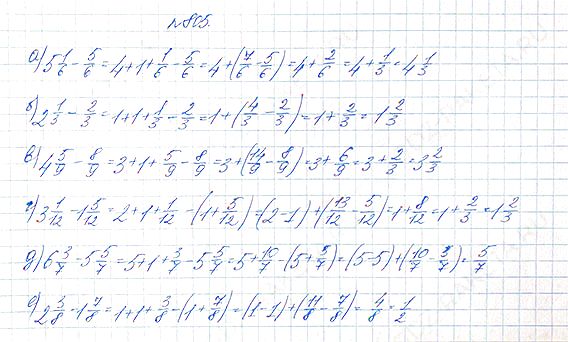 №805.
а) 5 1/6 - 5/6 = 4+1+ 1/6 - 5/6 = 4+(7/6 - 5/6) = 4+ 2/6 = 4+ 1/3 = 4 1/3
б) 2 1/3 - 2/3 = 1+1+ 1/3 - 2/3 = 1+(4/3 - 2/3) = 1+ 2/3 = 1 2/3
в) 4 5/9 - 8/9 = 3+1+ 5/9 - 8/9 = 3+(14/9 - 8/9) = 3+ 6/9 = 3+ 2/3 = 3 2/3
г) 3 1/12 - 1 5/12 = 2+1+ 1/12 - (1+ 5/12) = (2-1)+(13/12 - 5/12) = 1+ 8/12 = 1+ 2/3 = 1 2/3
д) 6 3/7 - 5 5/7 = 5+1+ 3/7 - 5 5/7 = 5+ 10/7 - (5+ 5/7) = (5-5)+(10/7 - 5/7) = 5/7
е) 2 3/8 - 1 7/8 = 1+1+ 3/8 - (1+ 7/8) = (1-1)+(11/8 - 7/8) = 4/8 = 1/2